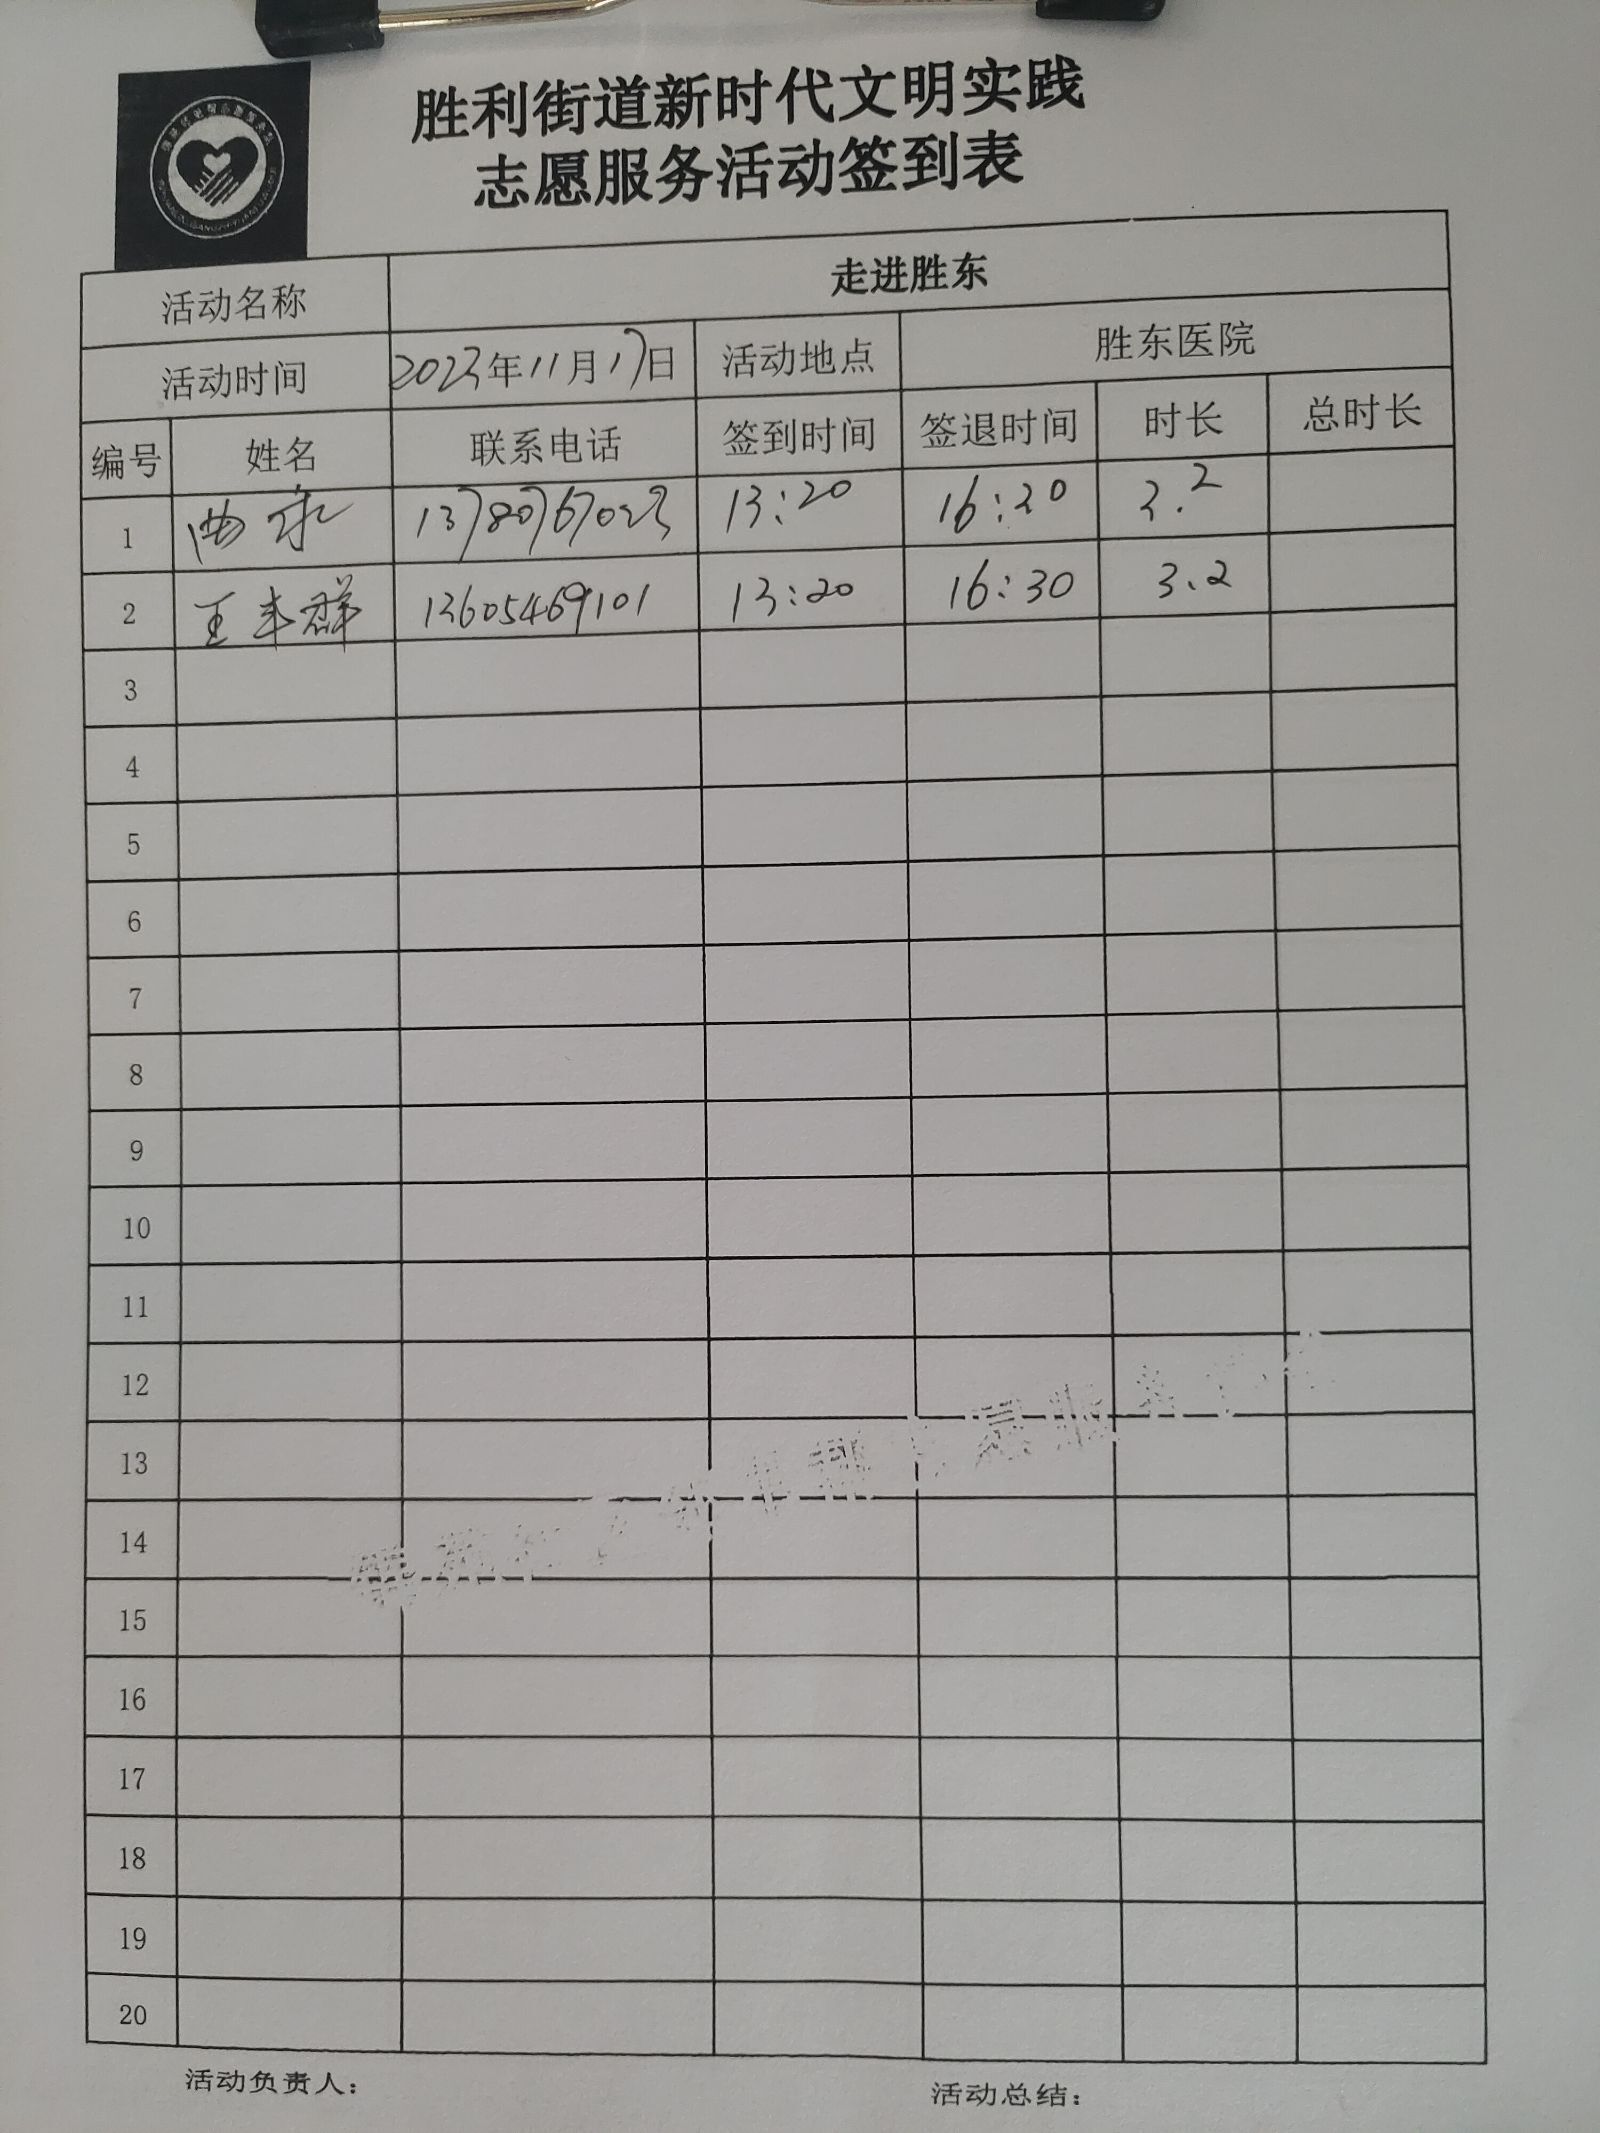 胜利街道新时代文明实践
志愿服务活动签到表
活动名称 走进胜东
活动时间 2023年11月17日 活动地点 胜东医院
编号 姓名 联系电话 签到时间 签退时间 时长 总时长
1 曲永 13780767023 13:20 16:30 3.2
2 王丰群 13605469101 13:20 16:30 3.2
3
4
5
6
7
8
9
10
11
12
13
14
15
16
17
18
19
20
活动负责人： 活动总结：